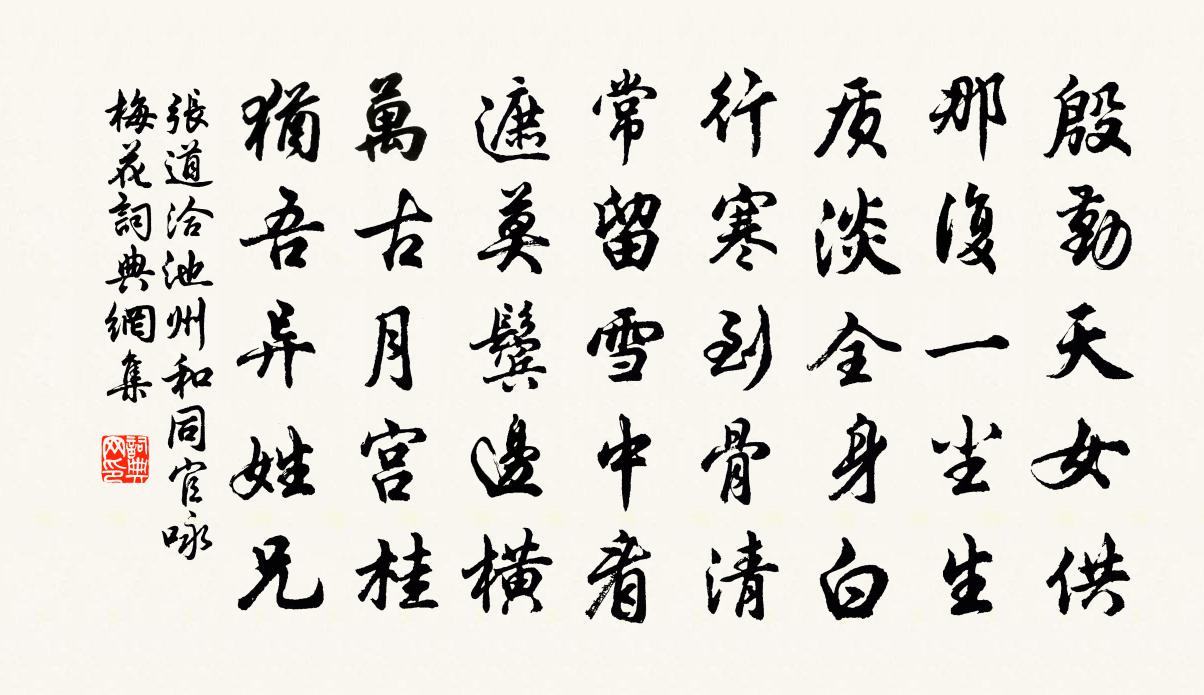 殷勤天女供
那復一尘生
质淡全身白
行寒到骨清
常留雪中看
遮莫鬓邊横
萬古月宫桂
猶吾异姓兄
張道洽池州和同官咏
梅花詞典網集
詞典网印